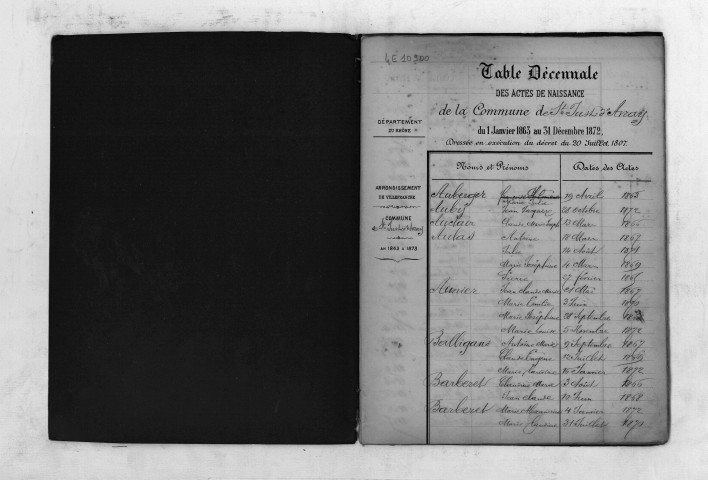 4E 10900
Table Décennale
DES ACTES DE NAISSANCE
de la Commune de St Just d'Avray
du 1 Janvier 1863 au 31 Décembre 1872,
Dressée en exécution du décret du 20 Juillet 1807.
DÉPARTEMENT
DU RHÔNE
ARRONDISSEMENT
DE VILLEFRANCHE
COMMUNE
de St Just d'Avray
DE 1863 à 1872
Noms et Prénoms Dates des Actes
Auberger 29 Avril 1865
Auby Jean Jacques 28 octobre 1872
Auclair Claude Marie Joseph 13 Mars 1866
Aulas Antoine 18 Mars 1867
Julie 14 Août 1871
Marie Joséphine 14 Mars 1869
Pierre 27 février
Aunier Jean Claude Marie Mai 1867
Marie Emilie 3 Juin
Marie Joséphine 28 Septembre
Marie Louise 5 Novembre 1872
Balligand Antoine Marie 9 Septembre 1867
Claude Eugène 12 Juillet
Marie 15 Janvier 1872
Barberet Claudine Marie 3 Août 1866
Jean Claude 11 Juin 1868
Barberet Marie 4 Janvier 1872
Marie Claudine 31 Juillet 1870